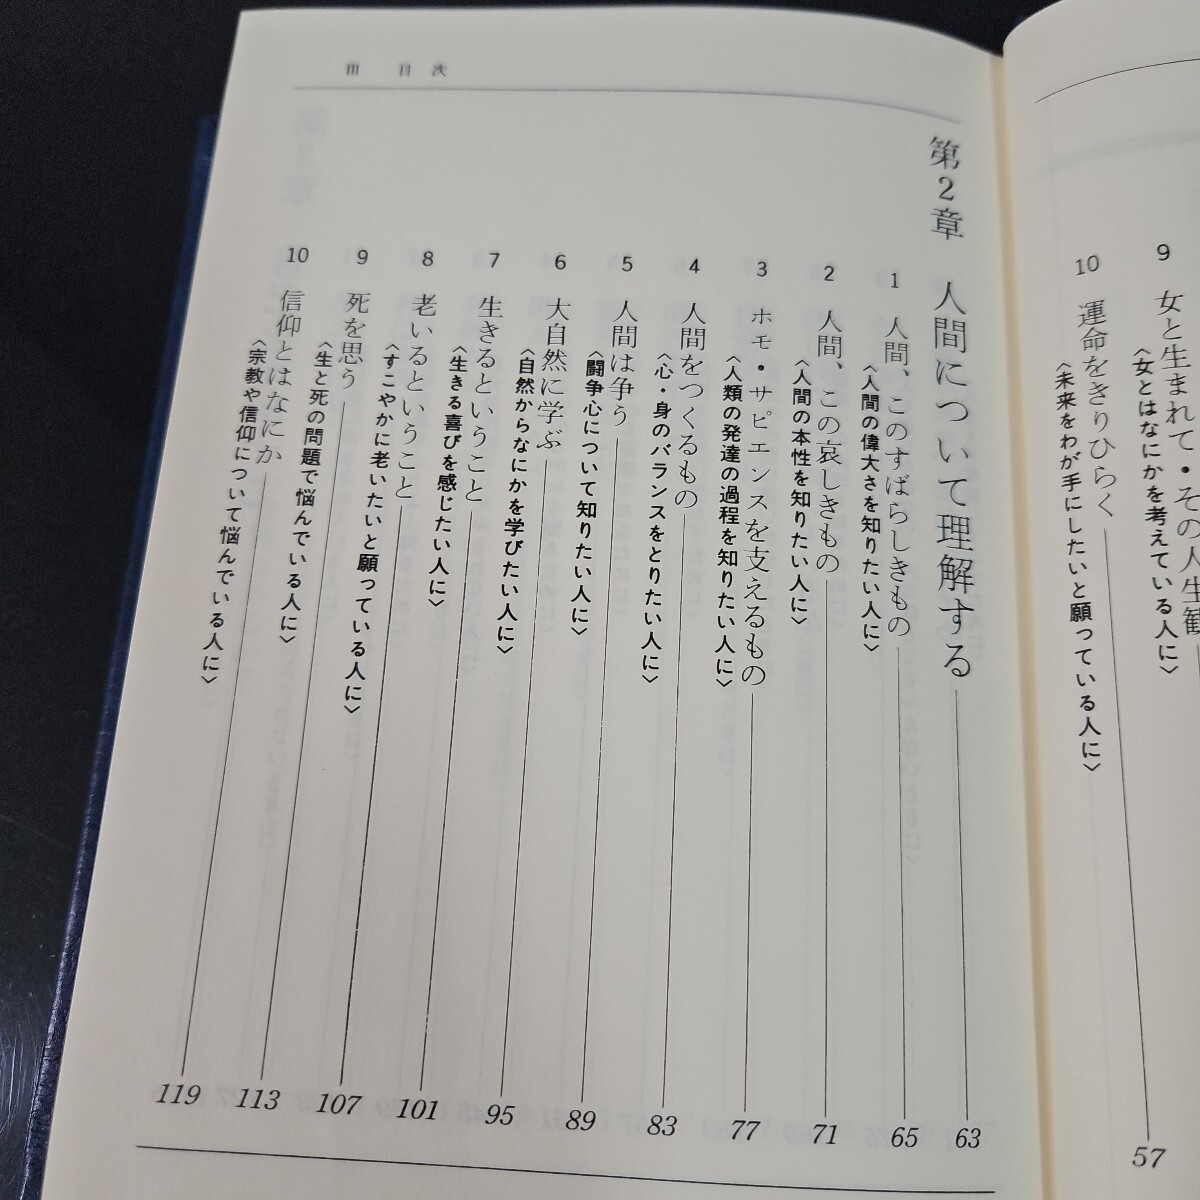 9 女と生まれて・その人生観
〈女とはなにかを考えている人に〉
57
10 運命をきりひらく
〈未来をわが手にしたいと願っている人に〉
III 目次
第2章 人間について理解する 63
1 人間、このすばらしきもの 65
〈人間の偉大さを知りたい人に〉
2 人間、この哀しきもの 71
〈人間の本性を知りたい人に〉
3 ホモ・サピエンスを支えるもの 77
〈人類の発達の過程を知りたい人に〉
4 人間をつくるもの 83
〈心・身のバランスをとりたい人に〉
5 人間は争う 89
〈闘争心について知りたい人に〉
6 大自然に学ぶ 95
〈自然からなにかを学びたい人に〉
7 生きるということ 101
〈生きる喜びを感じたい人に〉
8 老いるということ 107
〈すこやかに老いたいと願っている人に〉
9 死を思う 113
〈生と死の問題で悩んでいる人に〉
10 信仰とはなにか 119
〈宗教や信仰について悩んでいる人に〉